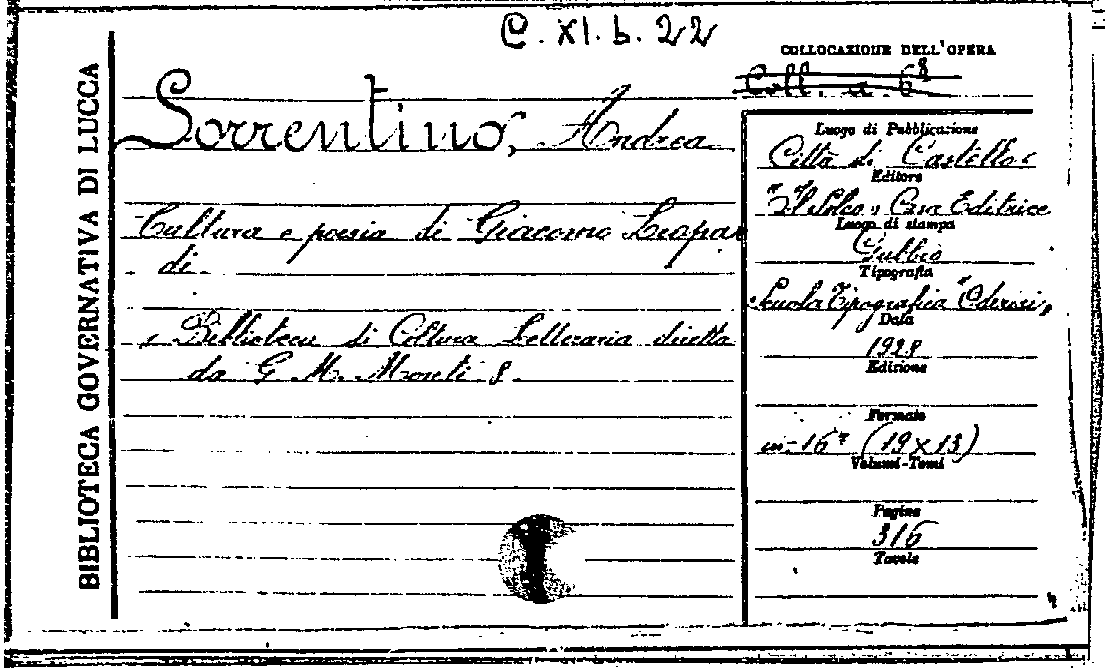 C. XI. b. 22
COLLOCAZIONE DELL'OPERA
Coll. a. 6⁸
BIBLIOTECA GOVERNATIVA DI LUCCA
Sorrentino, Andrea
Cultura e poesia di Giacomo Leopar
di
« Biblioteca di Coltura Letteraria diretta
da G. M. Monti 8.
Luogo di Pubblicazione
Città di Castello
Editore
"Il Solco" Casa Editrice
Luogo di stampa
Gubbio
Tipografia
"Scuola Tipografica "Oderisi"
Data
1928
Edizione
Formato
in-16° (19 x 13)
Volumi-Tomi
Pagine
316
Tavole